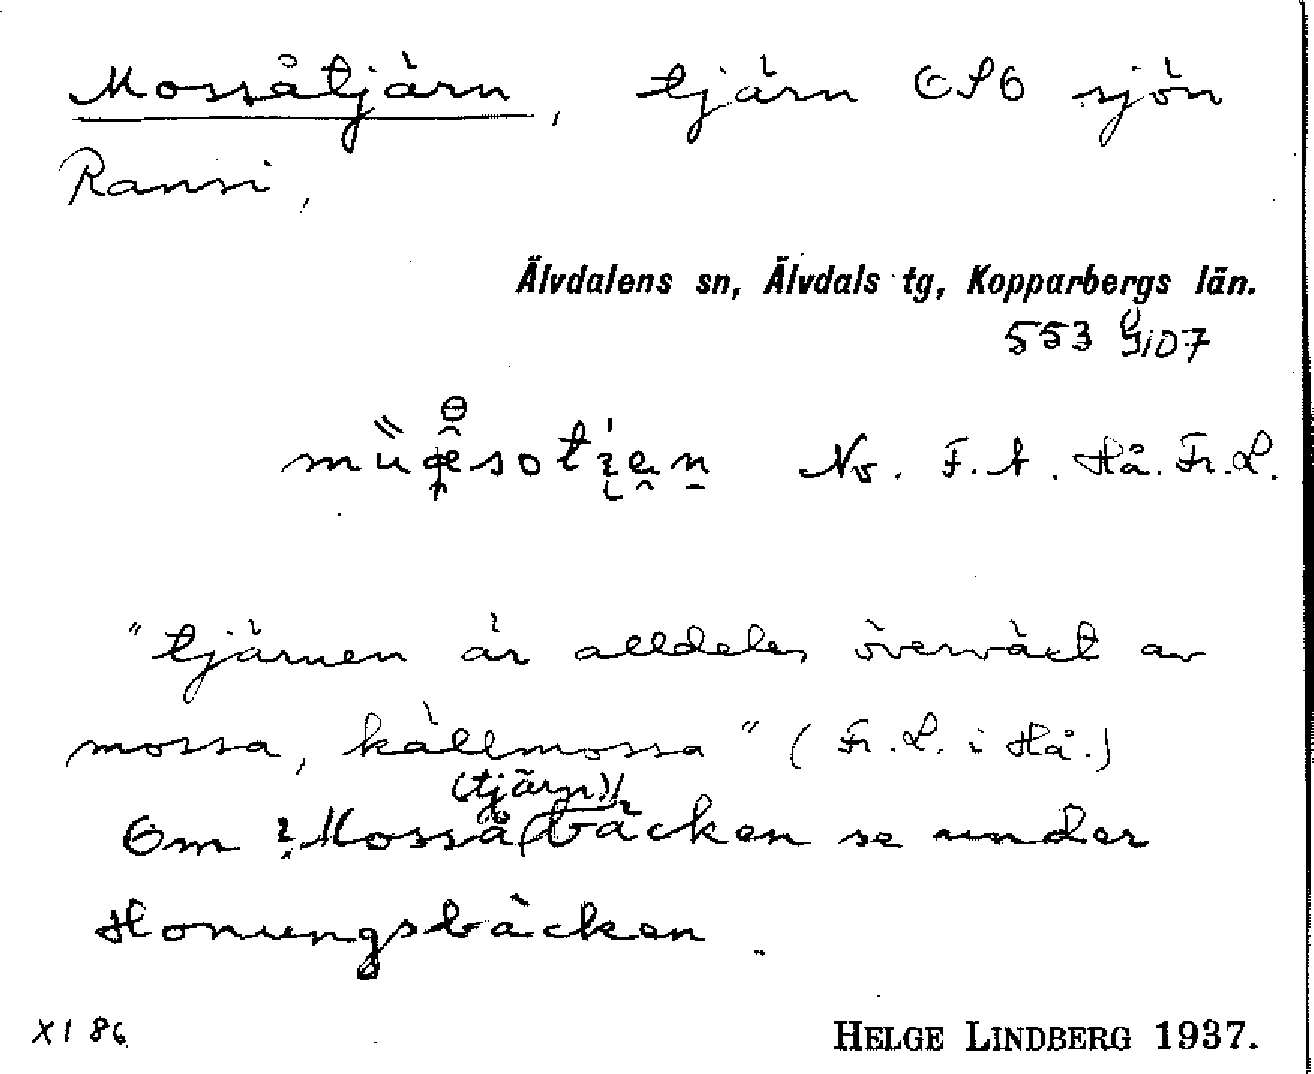 Mossåtjärn, tjärn OSO sjön
Ransi,
Älvdalens sn, Älvdals tg, Kopparbergs län.
553 9i07
No. F. A. Hå. Fr. L.
"tjärnen är alldeles överväxt av
mossa, källmossa" (Fr. L. i Hå.)
(tjärn)
Om ?Mosså bäcken se under
Honungsbäcken.
XI 86
HELGE LINDBERG 1937.